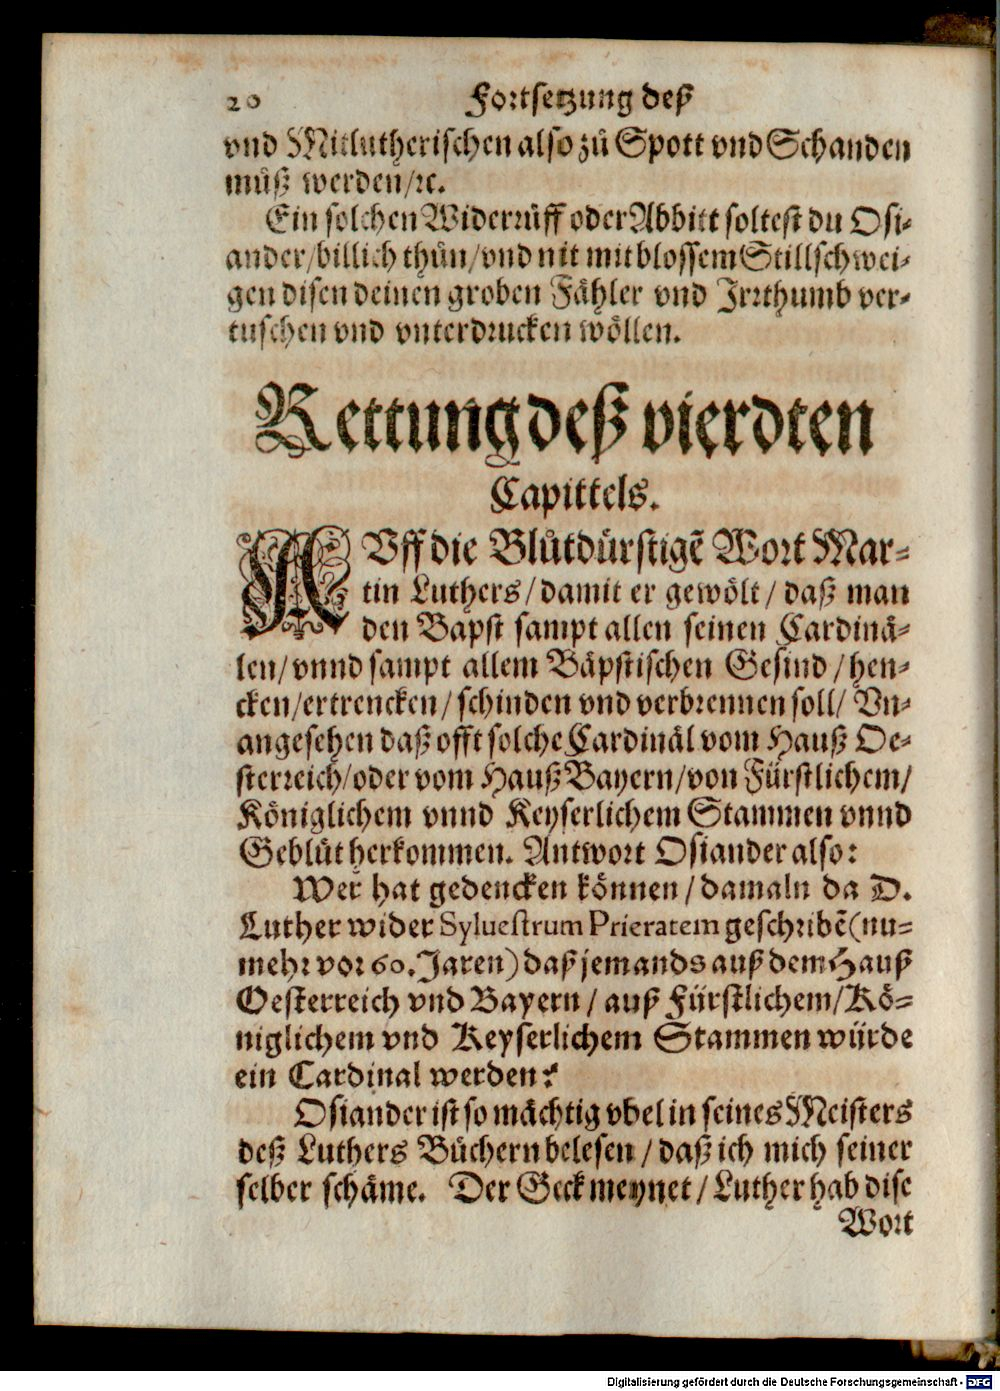 20 Fortsetzung deß
vnd Mitlutherischen also zů Spott vnd Schanden
můß werden/ꝛc.
Ein solchen Widerrůff oder Abbitt soltest du Osi-
ander/billich thůn/vnd nit mit blossem Stillschwei-
gen disen deinen groben Fähler vnd Irrthumb ver-
tuschen vnd vnterdrucken wöllen.
Rettung deß vierdten
Capittels.
AVff die Blůtdürstigẽ Wort Mar-
tin Luthers/damit er gewölt/daß man
den Bapst sampt allen seinen Cardinä-
len/vnnd sampt allem Bäpstischen Gesind/hen-
cken/ertrencken/schinden vnd verbrennen soll/Vn-
angesehen daß offt solche Cardinäl vom Hauß Oe-
sterreich/oder vom Hauß Bayern/von Fürstlichem/
Königlichem vnnd Keyserlichem Stammen vnnd
Geblüt herkommen. Antwort Osiander also:
Wer hat gedencken können/damaln da D.
Luther wider Syluestrum Prieratem geschribẽ(nu-
mehr vor 60. Jaren) daß jemands auß dem Hauß
Oesterreich vnd Bayern/auß Fürstlichem/Kö-
niglichem vnd Keyserlichem Stammen würde
ein Cardinal werden?
Osiander ist so mächtig vbel in seines Meisters
deß Luthers Büchern belesen/daß ich mich seiner
selber schäme. Der Geck meynet/Luther hab dise
Wort
Digitalisierung gefördert durch die Deutsche Forschungsgemeinschaft - DFG